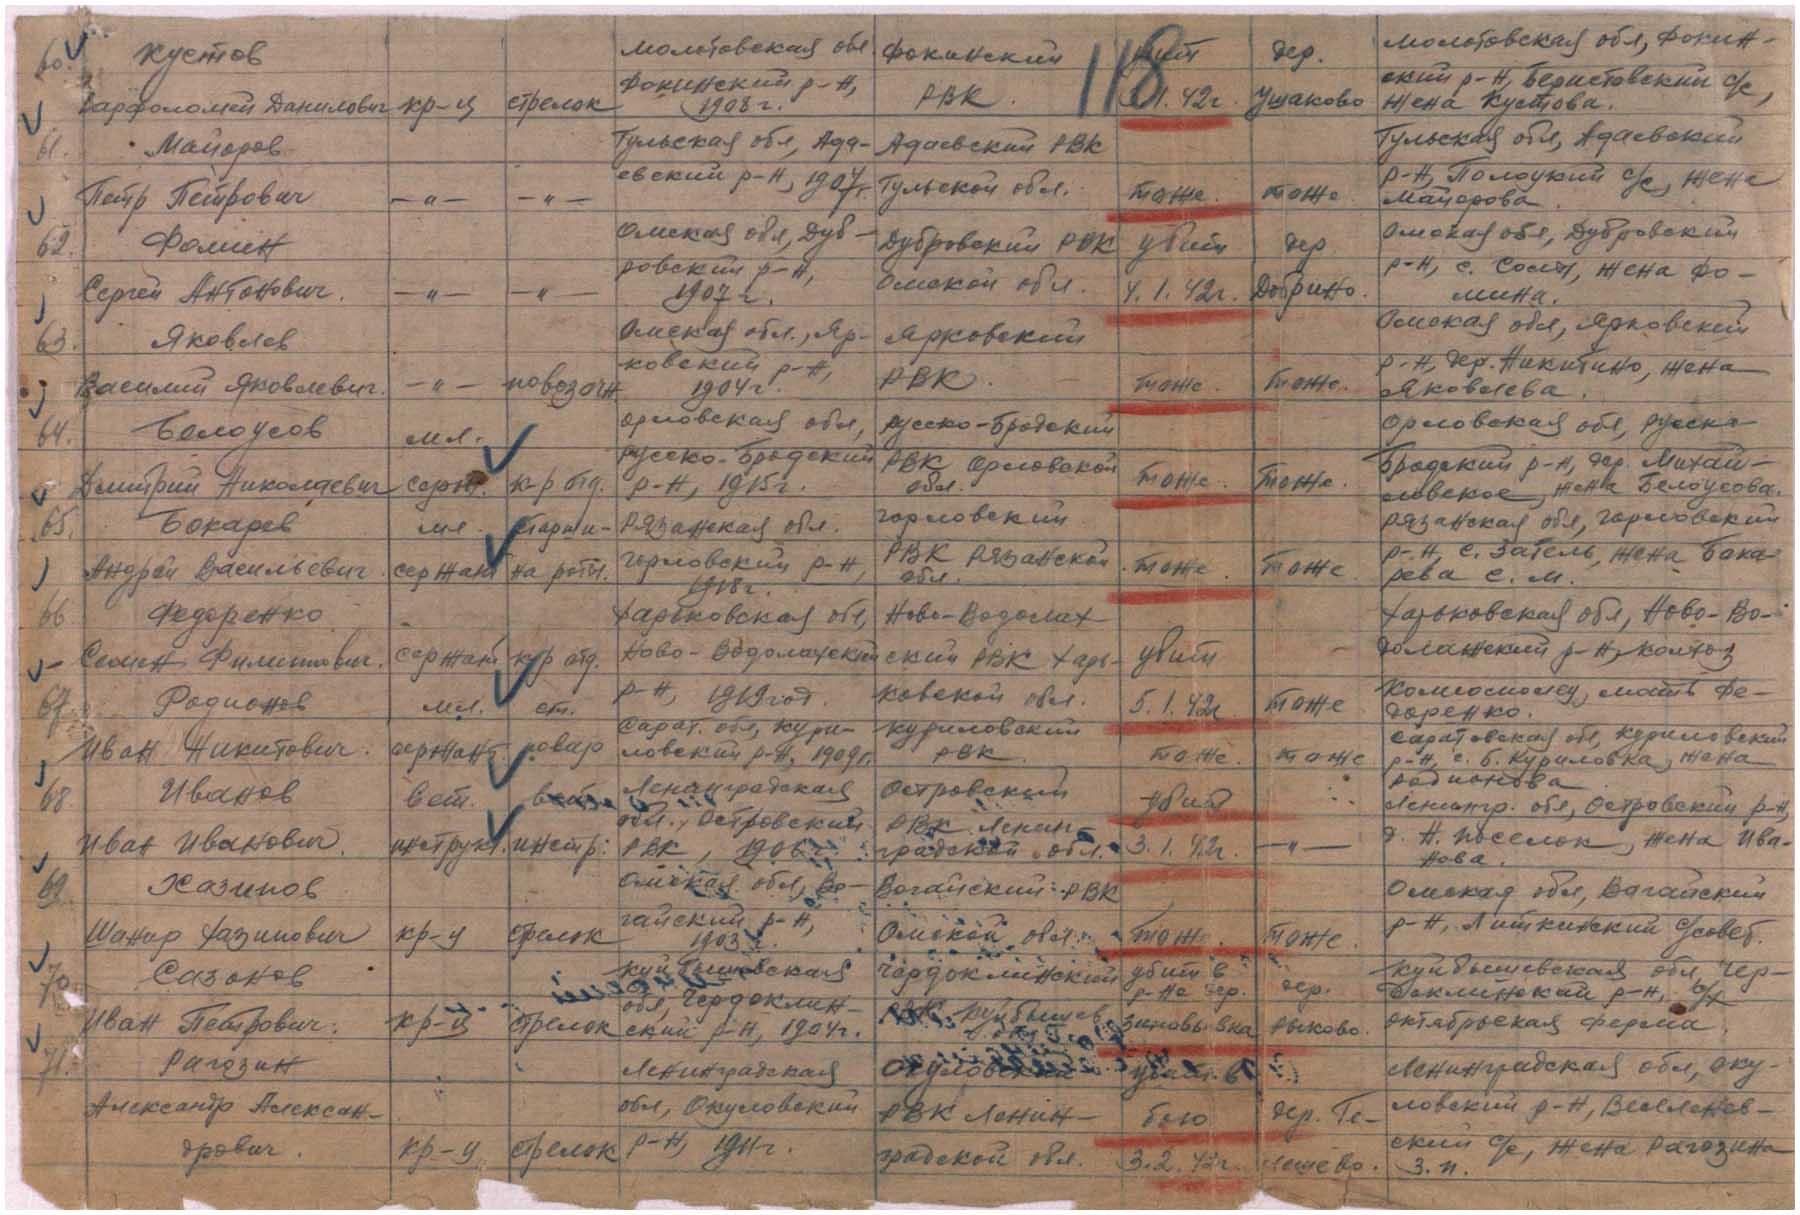 118
60. Кустов
Варфоломей Данилович кр-ц стрелок
Молотовская обл
Фокинский р-н,
1908 г.
Фокинский
РВК.
1.42г.
дер.
Ушаково
Молотовская обл, Фокин-
ский р-н, с/с,
жена Кустова.
61. Майоров
Петр Петрович —"— —"—
Тульская обл, Ада-
евский р-н, 1907г.
Адаевский РВК
Тульской обл.
тоже.
тоже.
Тульская обл, Адаевский
р-н, Полоцкий с/с, жена
Майорова.
62. Фомин
Сергей Антонович. —"— —"—
Омская обл, Дуб-
ровский р-н,
1907 г.
Дубровский РВК
Омской обл.
убит
4.1.42г.
дер
Добрино.
Омская обл, Дубровский
р-н, с. жена Фо-
мина.
63. Яковлев
Василий Яковлевич. —"— повозочн
Омская обл., Яр-
ковский р-н,
1904г.
Ярковский
РВК.
тоже.
тоже.
Омская обл, Ярковский
р-н, дер. Никитино, жена
Яковлева.
64. Белоусов
Дмитрий Николаевич
мл.
серж. к-р отд.
Орловская обл,
Русско-Бродский
р-н, 1915г.
Русско-Бродский
РВК Орловской
обл.
тоже.
тоже.
Орловская обл, Русско-
Бродский р-н, дер. Михай-
ловское, жена Белоусова.
65. Бокарев
Андрей Васильевич.
мл. старши-
сержант на роты.
Рязанская обл.
Горловский р-н,
1918г.
Горловский
РВК Рязанской
обл.
тоже
тоже
Рязанская обл, Горловский
р-н, с. жена Бока-
рева С. М.
66 Федоренко
Семен Филиппович. сержант к-р отд.
Харьковская обл,
Ново-Водолажский
р-н, 1919 год.
Ново-Водолаж-
ский РВК Харь-
ковской обл.
убит
5.1.42г
тоже
Харьковская обл, Ново-Во-
доланский р-н, колхоз
Комсомолец, мать Фе-
доренко.
67. Родионов
Иван Никитович.
мл. ст.
сержант повар
Сарат. обл, Кури-
ловский р-н, 1909г.
Куриловский
РВК
тоже.
тоже
Саратовская обл, Куриловский
р-н, с. Б. Куриловка, жена
Родионова
68. Иванов
Иван Иванович.
вет. вет.
инструкт. инстр.
Ленинградская
обл., Островский
РВК, 1906
Островский
РВК Ленин-
градской обл.
убит
3.1.42г. —"—
Ленингр. обл, Островский р-н,
д. Н. поселок, жена Ива-
нова.
69. Хазипов
Шакир Хазипович кр-ц стрелок
Омская обл, Ва-
гайский р-н,
1903 г.
Вагайский РВК
Омской обл.
тоже.
тоже.
Омская обл, Вагайский
р-н, с/совет.
70. Сазонов
Иван Петрович. кр-ц стрелок
Куйбышевская
обл, Чердоклин-
ский р-н, 1904г.
Чердоклинский
РВК Куйбышев.
убит в
р-не дер.
Зиновьевка
дер.
Рыково.
Куйбышевская обл, Чер-
доклинский р-н,
октябрьская ферма.
71. Рагозин
Александр Алексан-
дрович. кр-ц стрелок
Ленинградская
обл, Окуловский
р-н, 1911г.
Окуловский
РВК Ленин-
градской обл.
убит в
бою
3.2.42г.
дер. Те-
Ленинградская обл, Оку-
ловский р-н,
ский с/с, жена Рагозина
З. П.